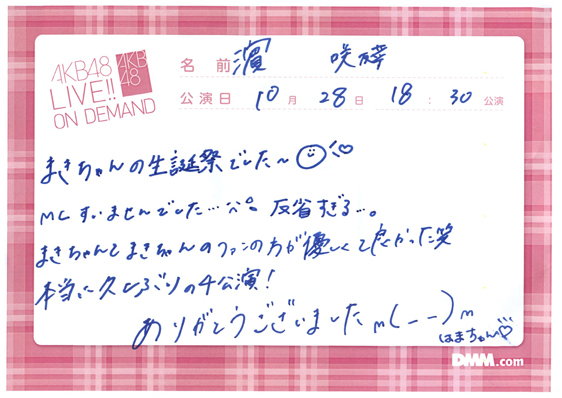 AKB48
LIVE!!
ON DEMAND
AKB
48
名 前 濵 咲友菜
公演日 10月 28日 18:30 公演
まきちゃんの生誕祭でした〜
MCすいませんでした…^^。反省すぎる…。
まきちゃんとまきちゃんのファンの方が優しくて良かった笑
本当に久しぶりの4公演!
ありがとうございましたm(_ _)m
はまちゃん♡
DMM.com